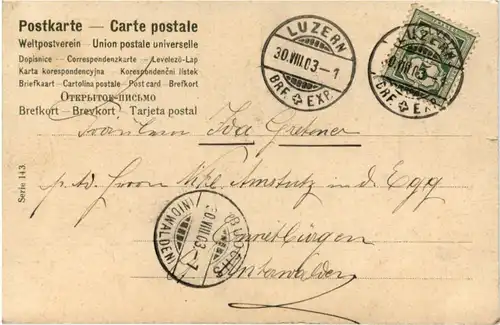 Postkarte — Carte postale
Weltpostverein — Union postale universelle
Dopisnice — Correspondenzkarte — Levelező-Lap
Karta korespondencyjna — Korespondenční lístek
Briefkaart — Cartolina postale — Post card — Brefkort
Открытое письмо
Brefkort — Brevkort — Tarjeta postal
LUZERN
30.VIII.03.–1
BRF. EXP.
LUZERN
30.VIII.03
BRF. EXP.
Fräulein Ida
p. ad. Herrn Amstutz in der Egg
Ennetbürgen
Unterwalden
Serie 143.
BUOCHS
30.VIII.03.–7
(NIDWALDEN)